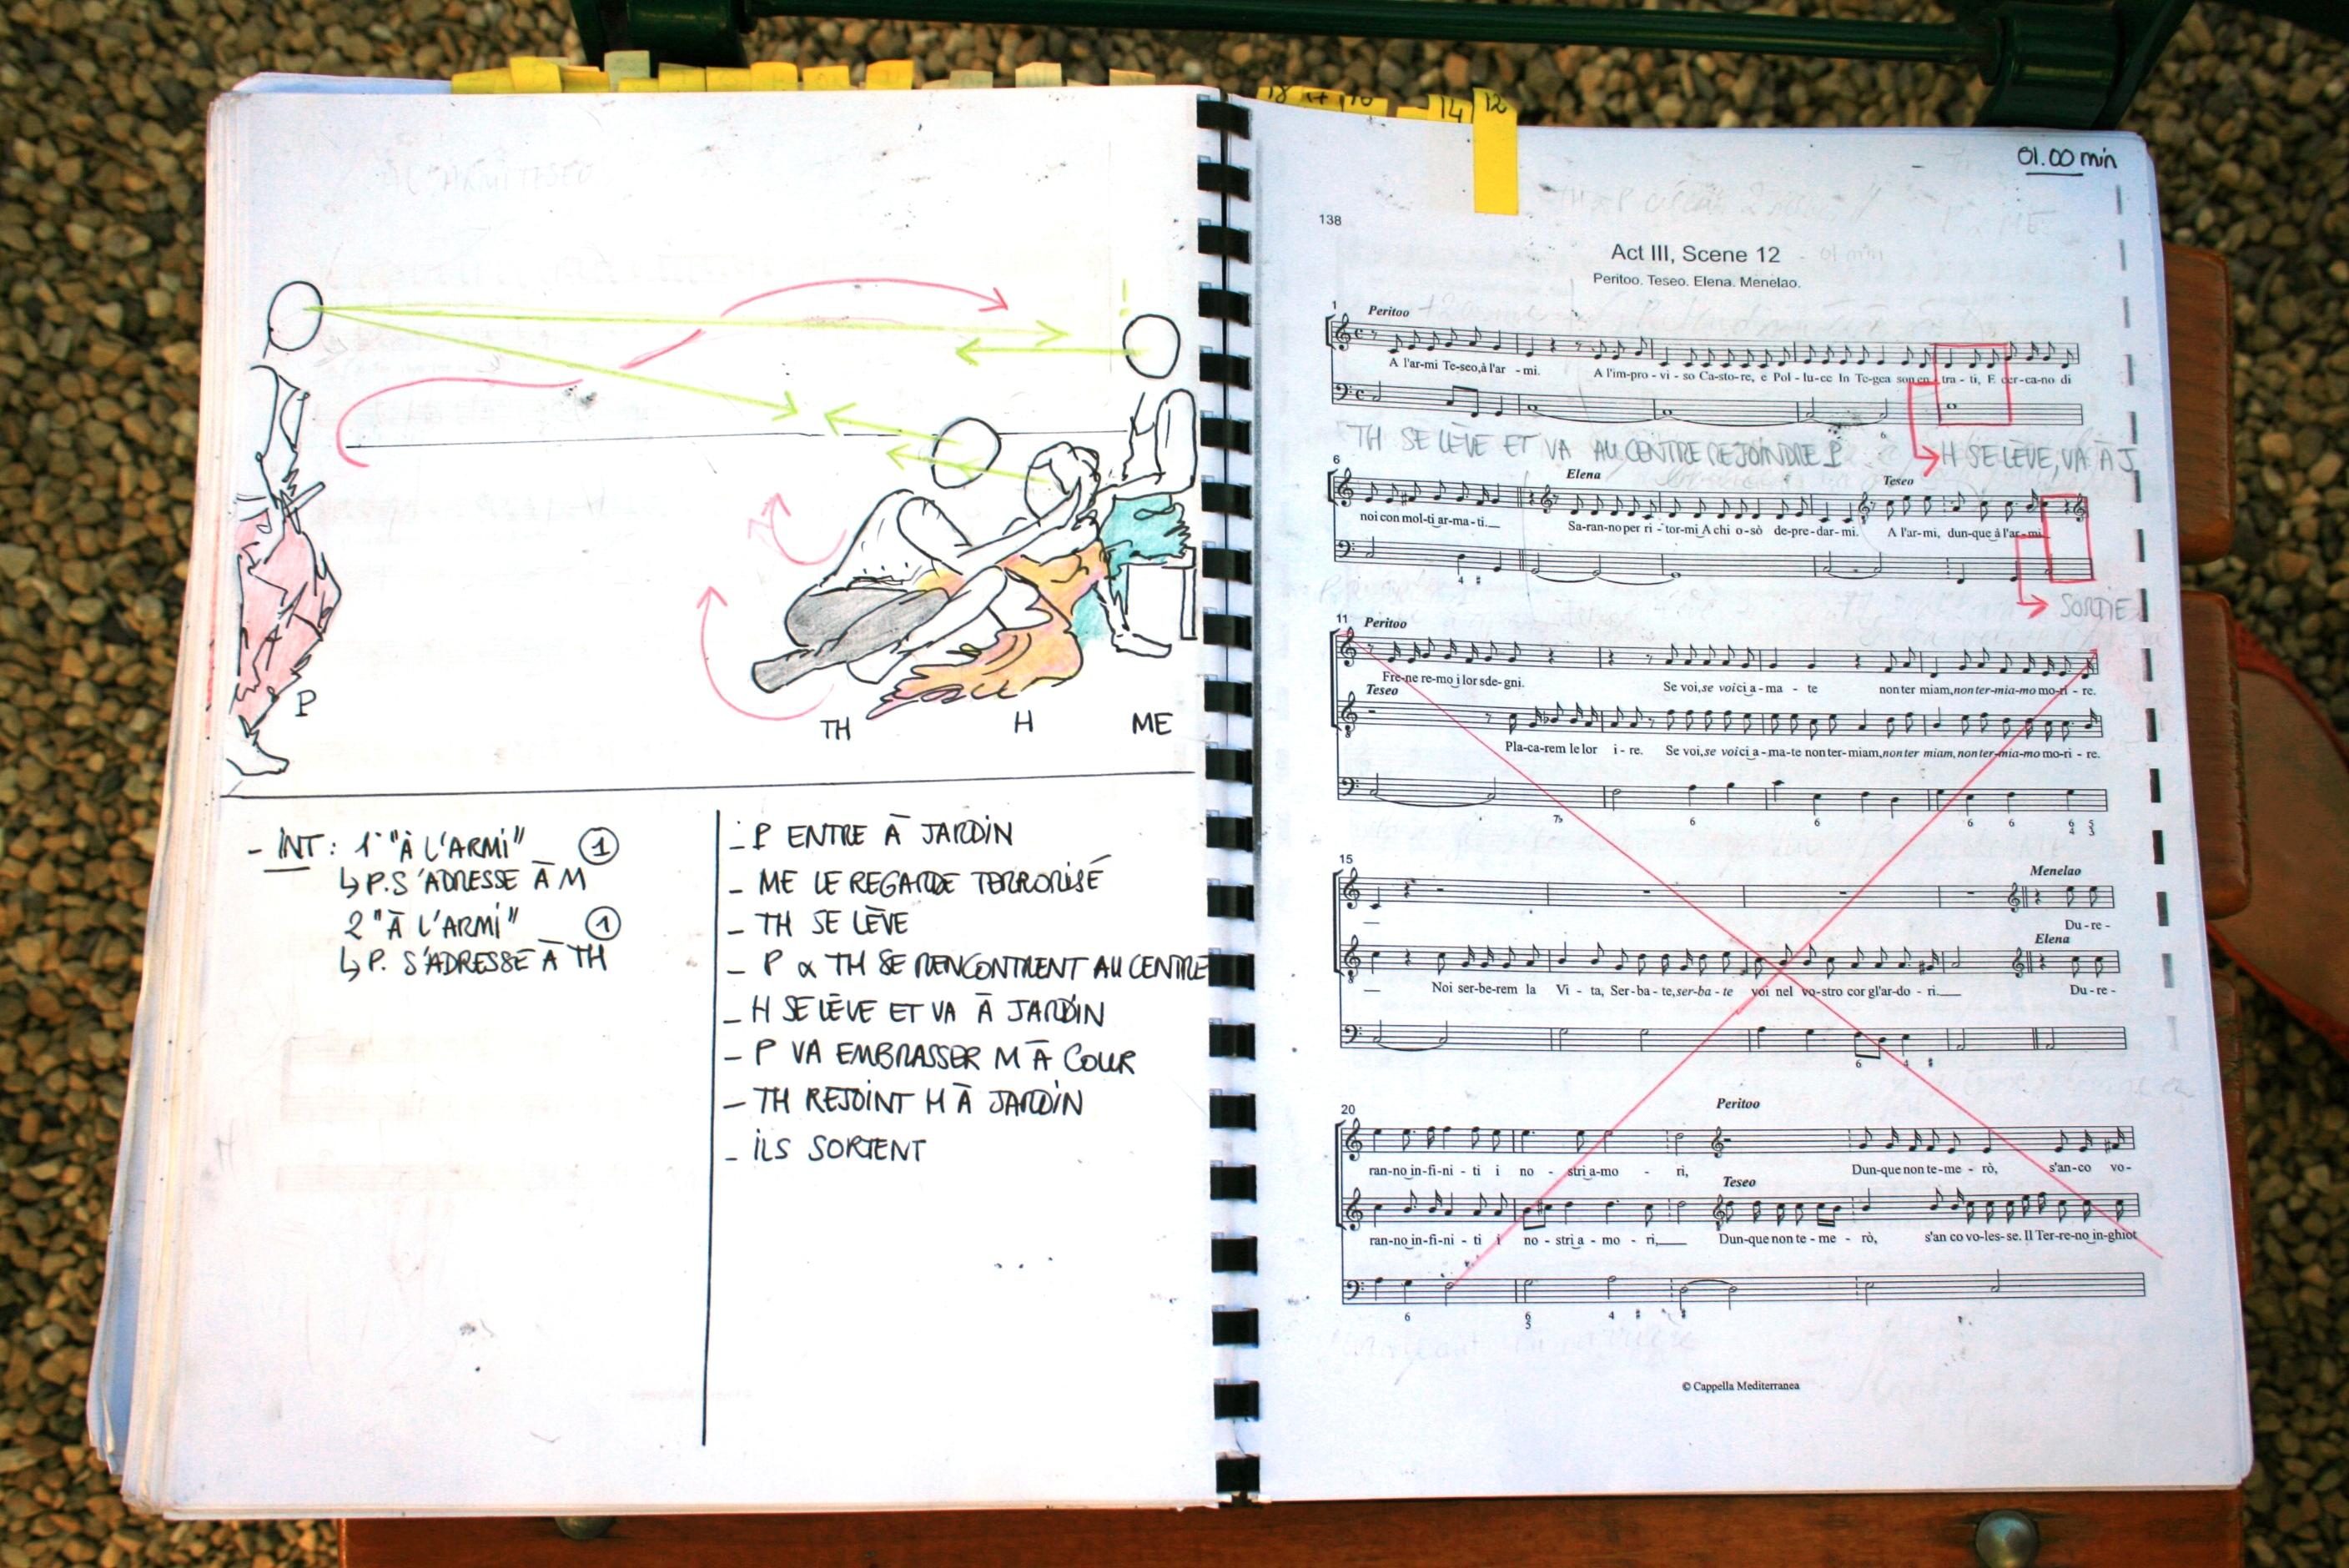 P
TH
H
ME
- INT : 1 "À L'ARMI" 1
↳ P. S'ADRESSE À M
2 "À L'ARMI" 1
↳ P. S'ADRESSE À TH
- P ENTRE À JARDIN
- ME LE REGARDE TERRORISÉ
- TH SE LÈVE
- P & TH SE RENCONTRENT AU CENTRE
- H SE LÈVE ET VA À JARDIN
- P VA EMBRASSER M À COUR
- TH REJOINT H À JARDIN
- ILS SORTENT
14 12
01.00 min
138
Act III, Scene 12
Peritoo. Teseo. Elena. Menelao.
1
Peritoo
A l'ar-mi Te-seo,à l'ar - mi. A l'im-pro - vi - so Ca-sto-re, e Pol - lu-ce In Te-gea son en - tra - ti, E cer-ca-no di
TH SE LÈVE ET VA AU CENTRE REJOINDRE P
H SE LÈVE, VA À J
6
Elena
Teseo
noi con mol-ti ar-ma-ti.
Sa-ran-no per ri - tor-mi A chi o-sò de-pre-dar-mi. A l'ar-mi, dun-que à l'ar-mi
4 #
SORTIE
11
Peritoo
Fre-ne re-mo i lor sde-gni. Se voi,se voi ci a - ma - te non ter miam,non ter-mia-mo mo-ri - re.
Teseo
Pla-ca-rem le lor i - re. Se voi,se voi ci a-ma-te non ter-miam,non ter miam,non ter-mia-mo mo-ri - re.
7b 6 6 6 6 6 5
4 3
15
Menelao
Du-re-
Elena
Noi ser-be-rem la Vi - ta, Ser-ba-te,ser-ba-te voi nel vo-stro cor gl'ar-do - ri.
Du-re-
6 4 #
20
Peritoo
ran-no in-fi-ni - ti i no - stri a-mo - ri, Dun-que non te-me - rò, s'an-co vo-
Teseo
ran-no in-fi-ni - ti i no - stri a - mo - ri, Dun-que non te - me - rò, s'an co vo-les-se. Il Ter-re-no in-ghiot
6 6 4 #
5
© Cappella Mediterranea